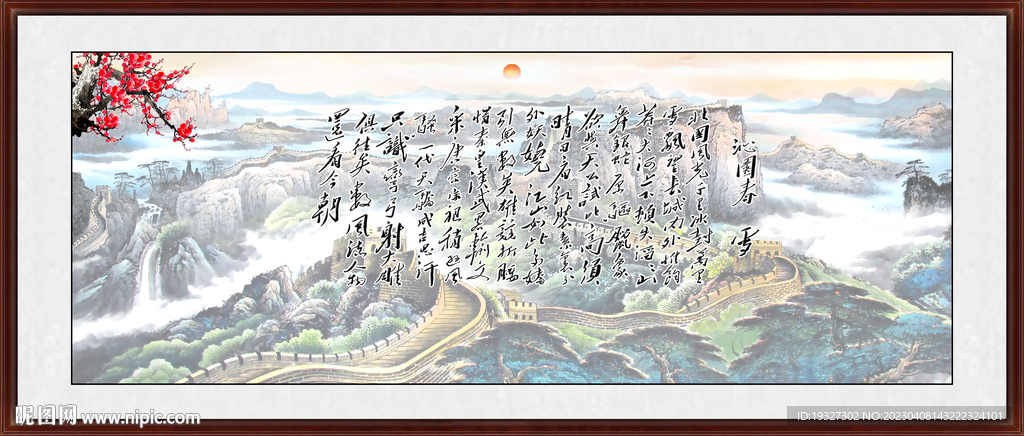 沁園春 雪
北国风光千里冰封万里
雪飘望长城内外惟余
莽莽大河上下顿失滔滔山
舞银蛇原驱臘象
欲与天公试比高须
晴日看红装素裹分
外妖娆 江山如此多娇
引无数英雄竞折腰
惜秦皇汉武略输文
采唐宗宋祖稍逊风
骚一代天骄成吉思汗
只識彎弓射大雕
俱往矣數風流人物
還看今朝
昵图网 www.nipic.com
ID:19327302 NO:20230408143222324101